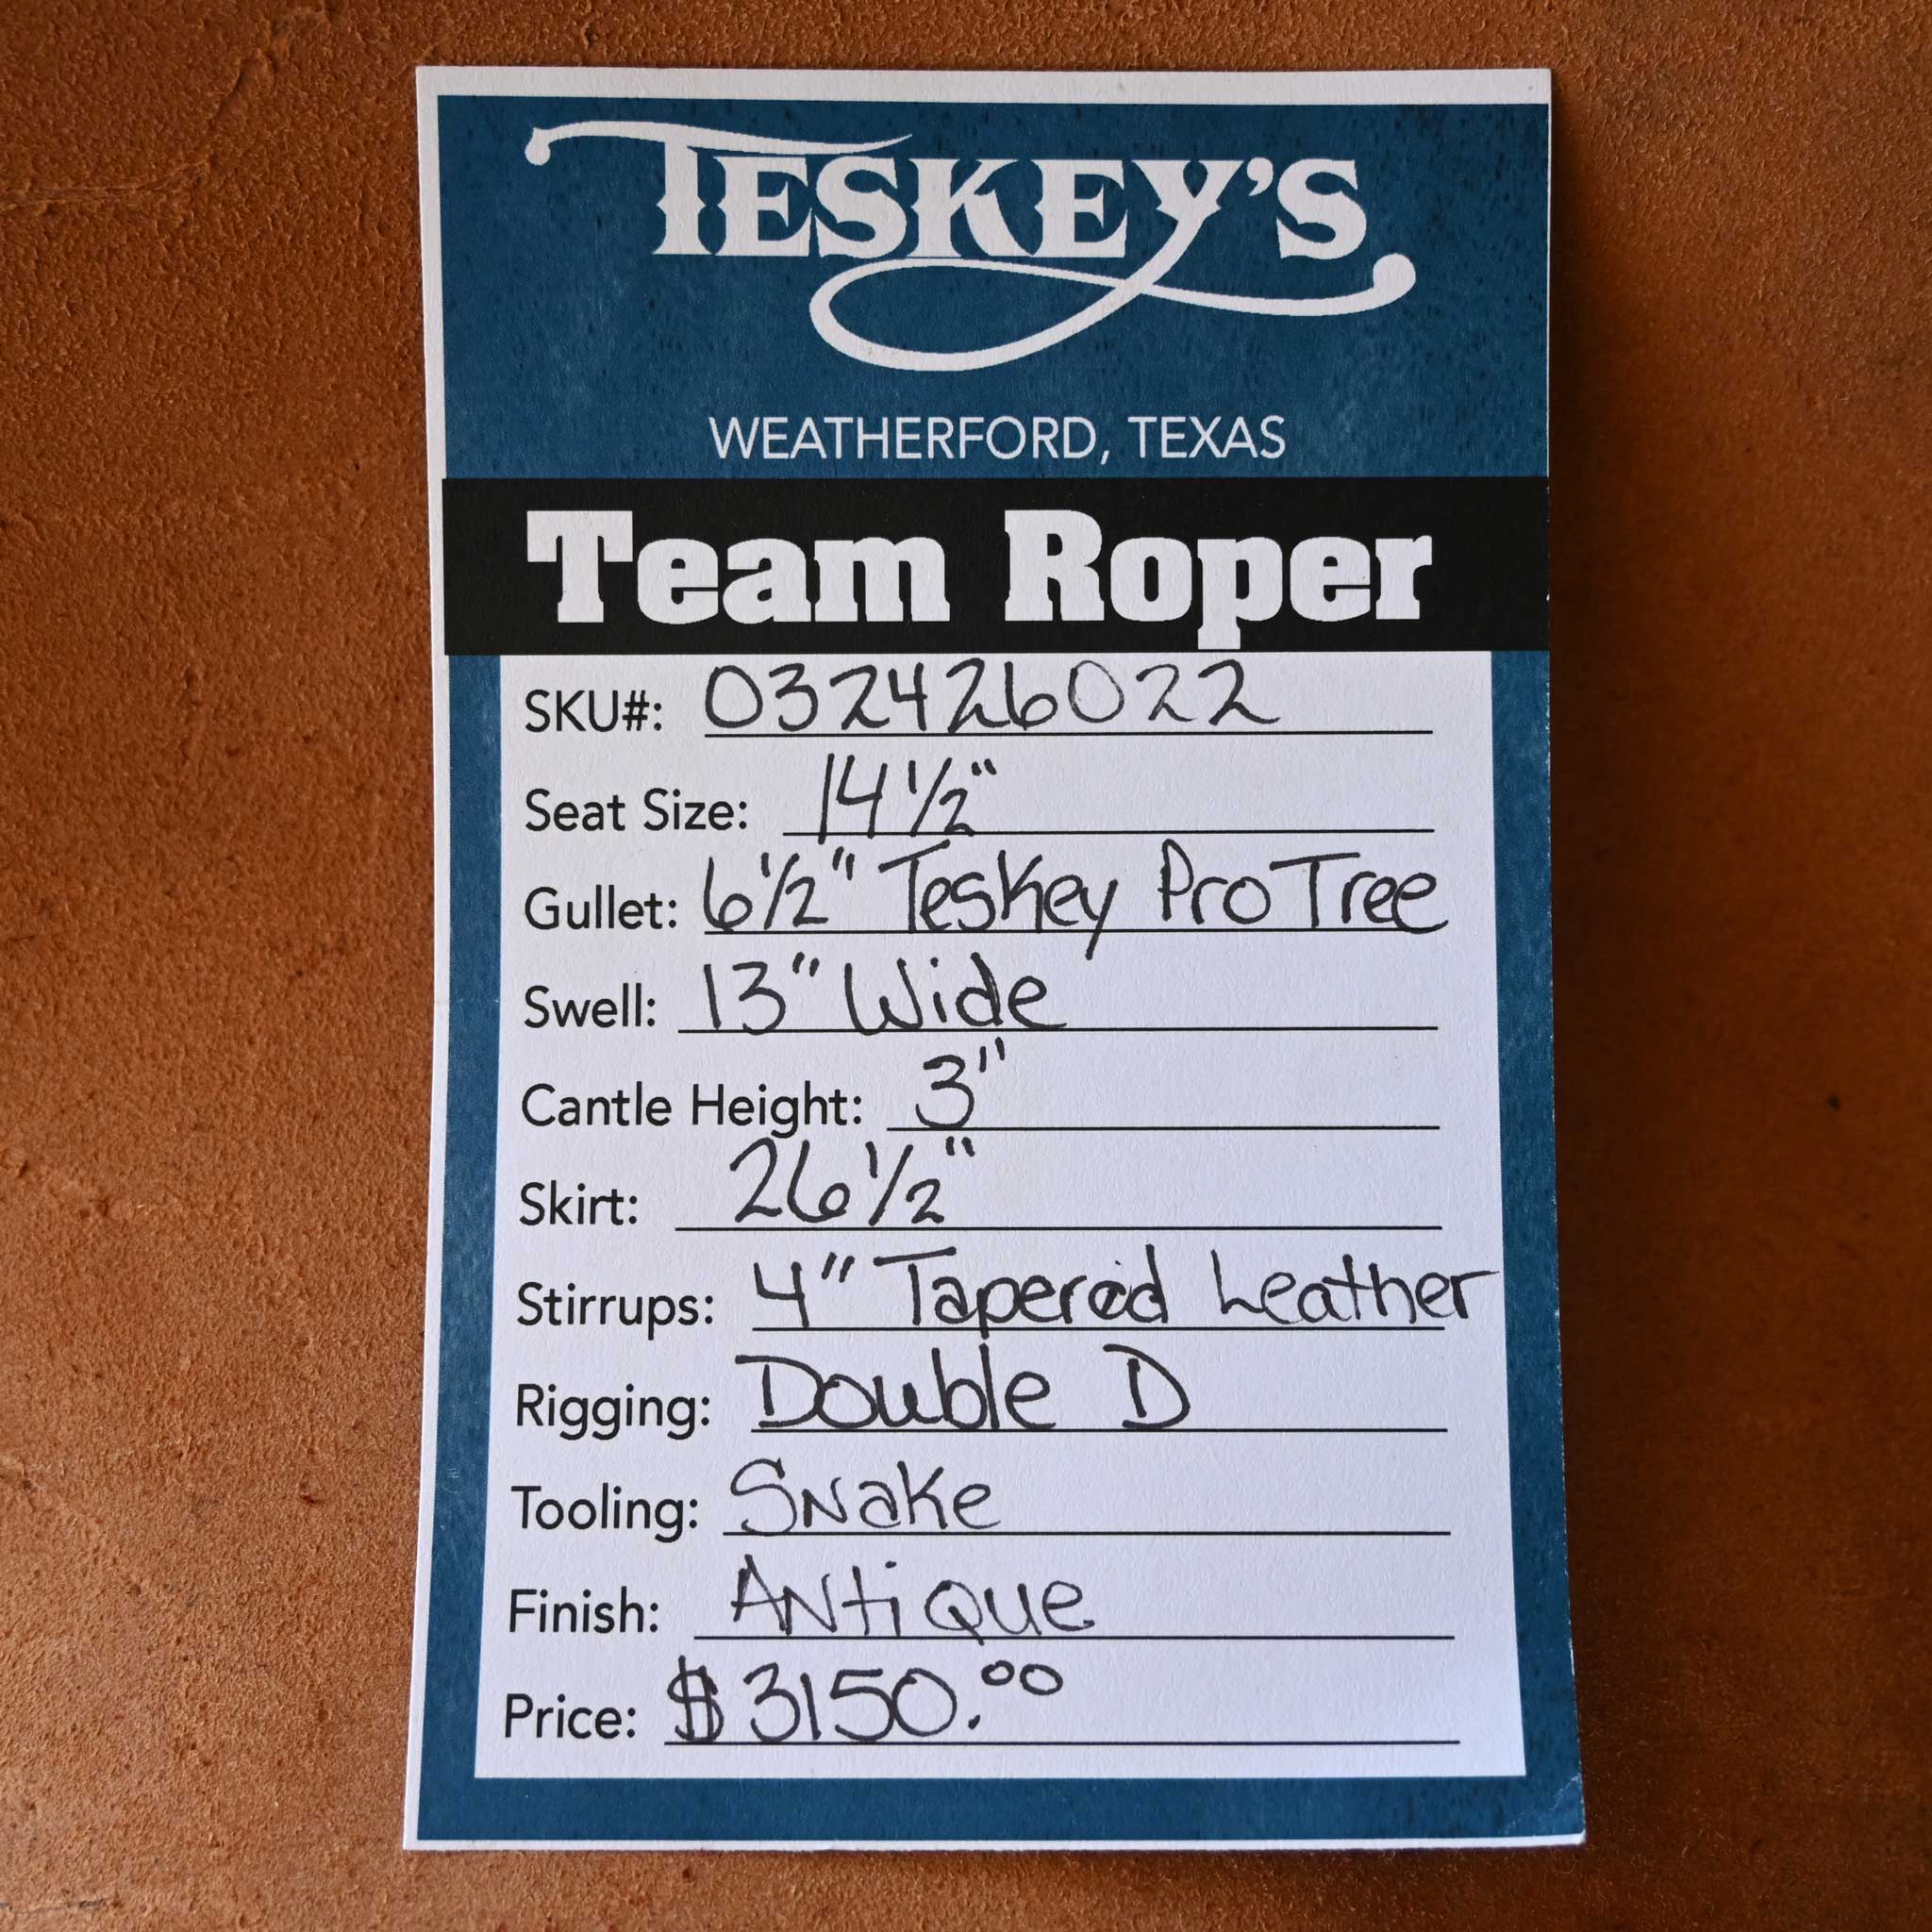 TESKEY'S
WEATHERFORD, TEXAS
Team Roper
SKU#: 032426022
Seat Size: 14 1/2"
Gullet: 6 1/2" Teskey Pro Tree
Swell: 13" Wide
Cantle Height: 3"
Skirt: 26 1/2"
Stirrups: 4" Tapered Leather
Rigging: Double D
Tooling: Snake
Finish: Antique
Price: $3150.00